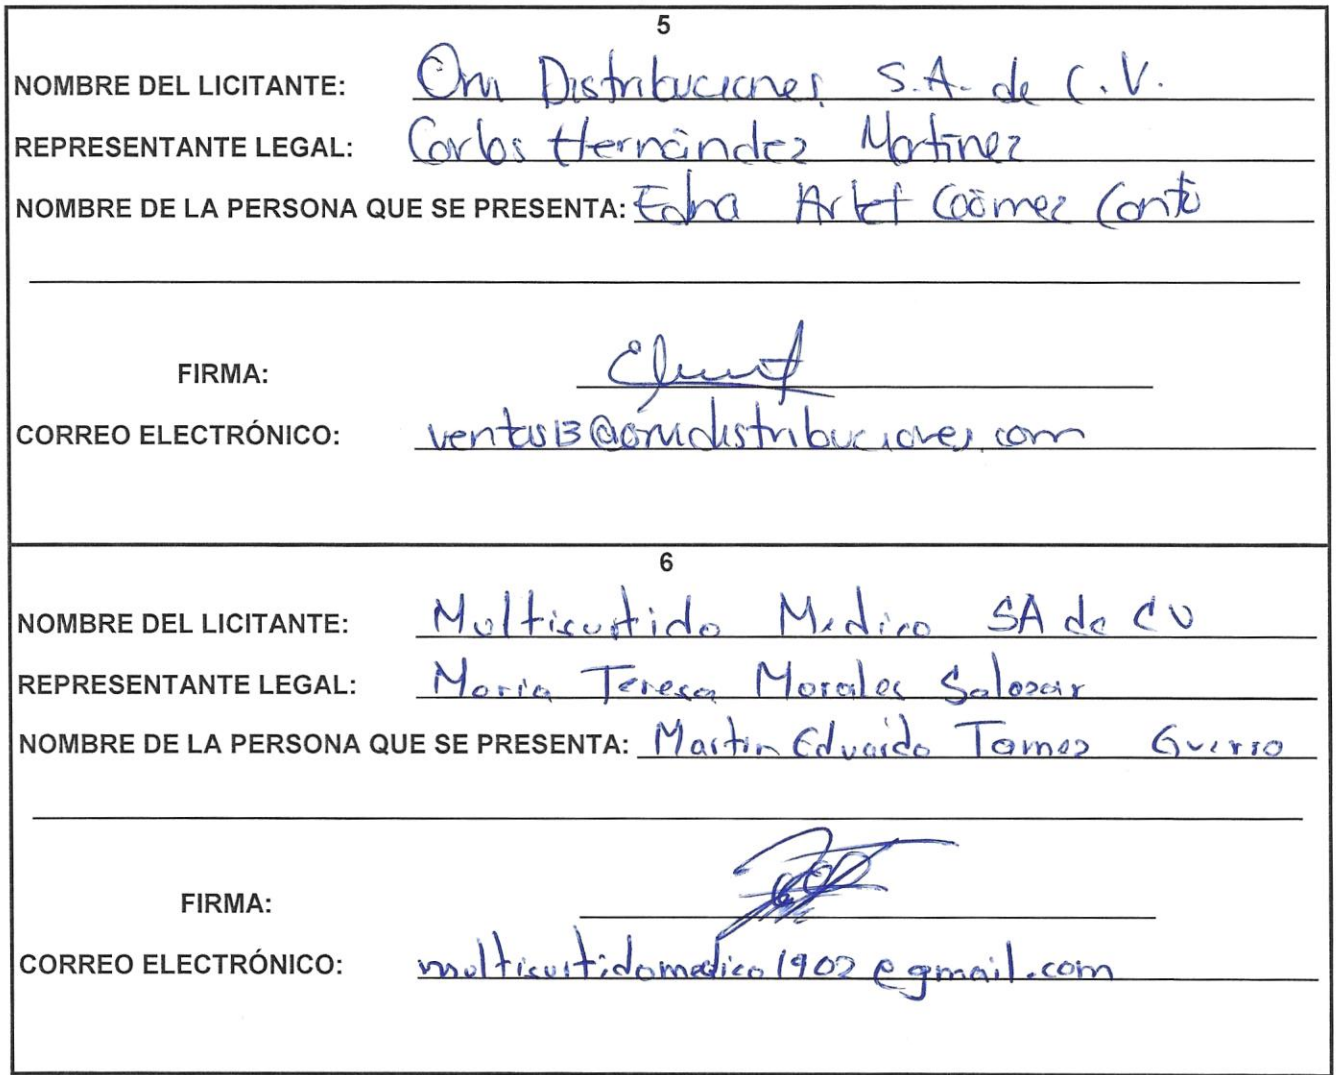 5
NOMBRE DEL LICITANTE: Omi Distribuciones, S.A. de C.V.
REPRESENTANTE LEGAL: Carlos Hernández Martínez
NOMBRE DE LA PERSONA QUE SE PRESENTA: Edna Gómez
FIRMA:
CORREO ELECTRÓNICO: ventas13@omidistribuciones.com
6
NOMBRE DEL LICITANTE: Multisurtido Medico SA de CV
REPRESENTANTE LEGAL: Maria Teresa Morales Salazar
NOMBRE DE LA PERSONA QUE SE PRESENTA: Martin Eduardo Tamez Guerro
FIRMA:
CORREO ELECTRÓNICO: multisurtidomedico1902@gmail.com